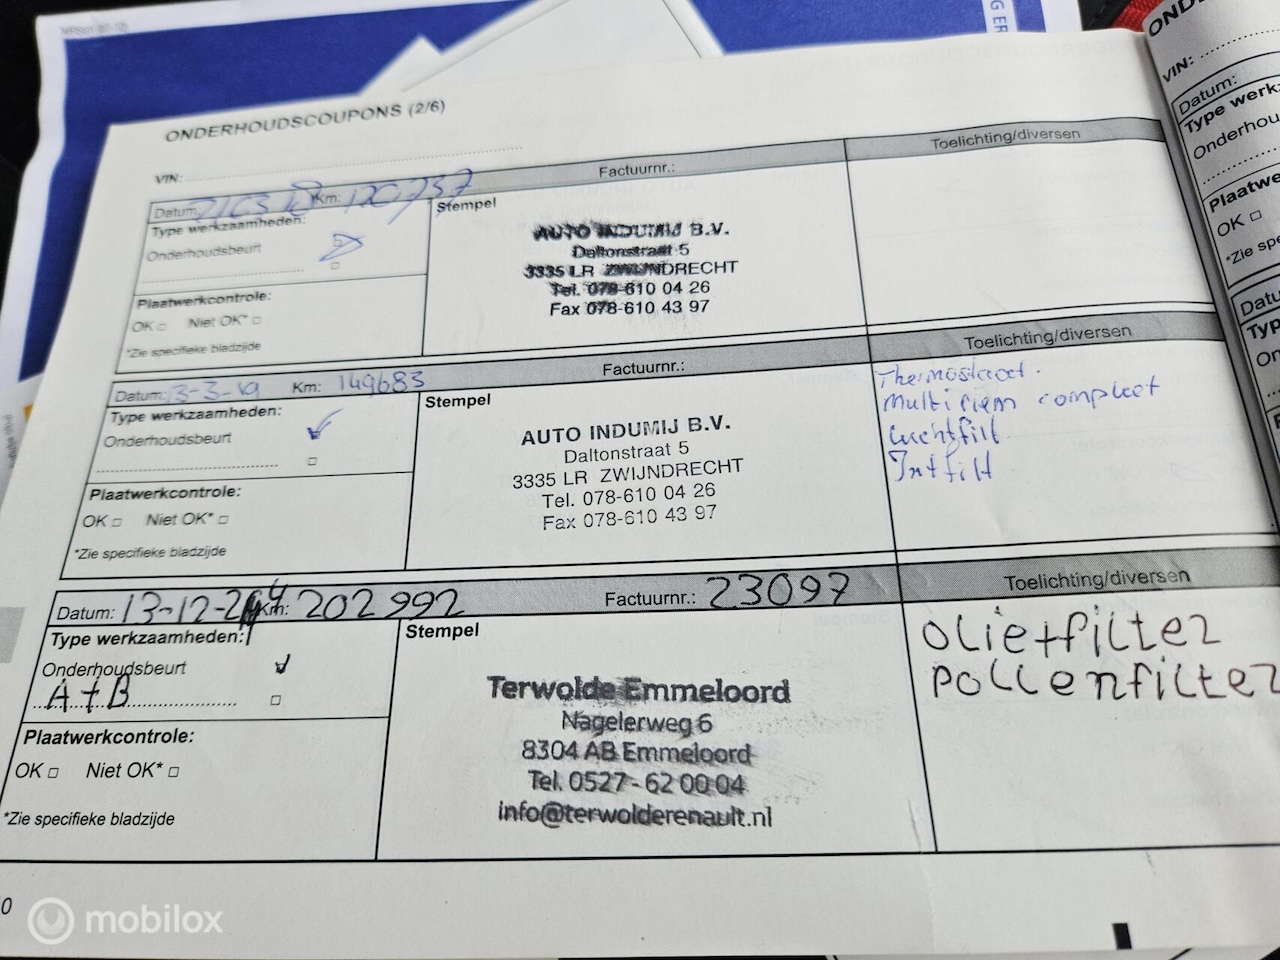 ONDERHOUDSCOUPONS (2/6)
VIN:
Factuurnr.:
Toelichting/diversen
Datum: Km: 120737
Type werkzaamheden:
Onderhoudsbeurt
Plaatwerkcontrole:
OK Niet OK*
*Zie specifieke bladzijde
Stempel
AUTO INDUMIJ B.V.
Daltonstraat 5
3335 LR ZWIJNDRECHT
Tel. 078-610 04 26
Fax 078-610 43 97
Datum: 13-3-19 Km: 149683
Factuurnr.:
Toelichting/diversen
Type werkzaamheden:
Onderhoudsbeurt
Plaatwerkcontrole:
OK Niet OK*
*Zie specifieke bladzijde
Stempel
AUTO INDUMIJ B.V.
Daltonstraat 5
3335 LR ZWIJNDRECHT
Tel. 078-610 04 26
Fax 078-610 43 97
Thermostaat.
Multiriem compleet
Luchtfilt.
Intfilt
Datum: Km: 202992
Factuurnr.: 23097
Toelichting/diversen
Type werkzaamheden:
Onderhoudsbeurt
A+B
Plaatwerkcontrole:
OK Niet OK*
*Zie specifieke bladzijde
Stempel
Terwolde Emmeloord
Nagelerweg 6
8304 AB Emmeloord
Tel. 0527-62 00 04
info@terwolderenault.nl
Olie+filter
pollenfilter
VIN:
Datum:
Type werkz
Onderhou
Plaatwerk
OK
*Zie spe
mobilox